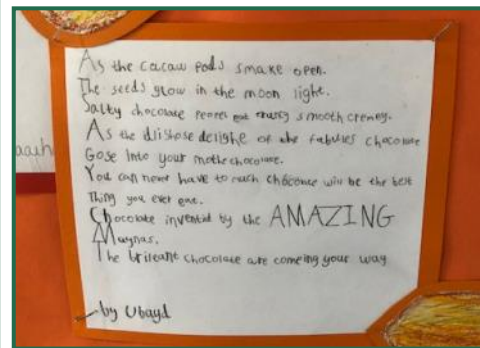 As the cacaw pods smake open.
The seeds glow in the moon light.
Salty chocolate smooth cremey.
As the dlishose delighe of the fabules chocolate
Gose Into your mothe chocolate.
You can never have to much choconce will be the best
Thing you ever eat.
Chocolate invented by the AMAZING
Maynas.
The brileant chocolate are comeing your way
by Ubayd